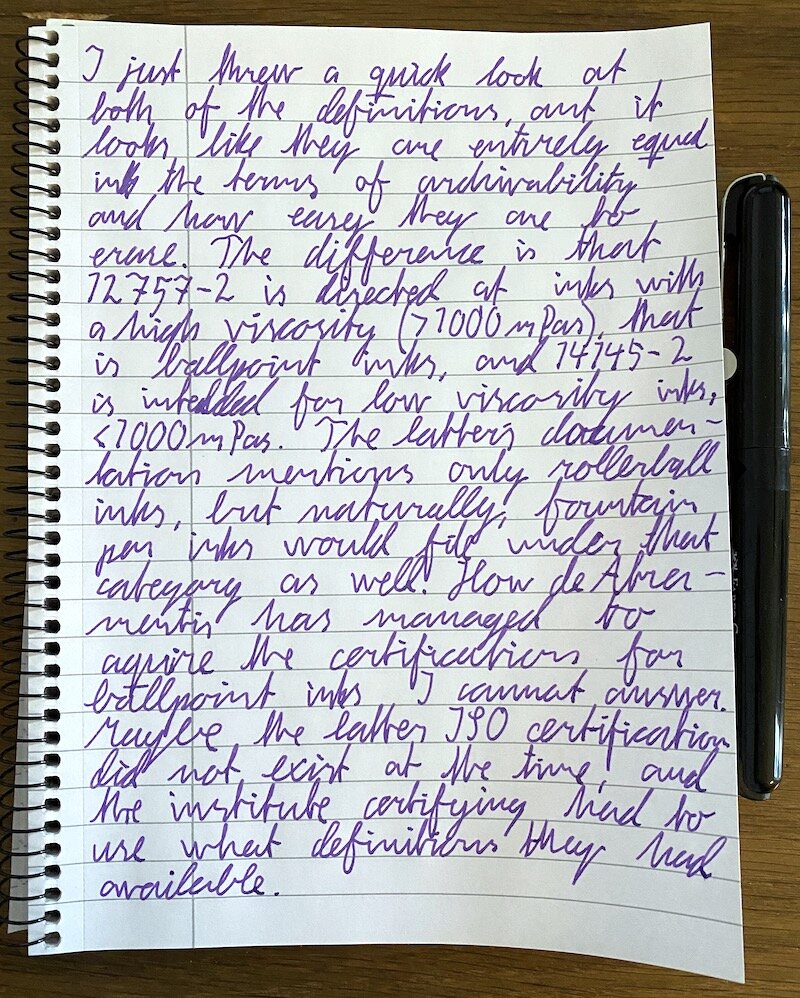 I just threw a quick look at
both of the definitions, and it
looks like they are entirely equal
in the terms of archivability
and how easy they are to
erase. The difference is that
12757-2 is directed at inks with
a high viscosity (>1000 mPas), that
is ballpoint inks, and 14145-2
is intedded for low viscosity inks,
<1000 mPas. The latter's documen-
tation mentions only rollerball
inks, but naturally, fountain
pen inks would file under that
category as well. How de Atra-
mentis has managed to
aquire the certifications for
ballpoint inks I cannot answer.
Maybe the latter ISO certification
did not exist at the time, and
the institute certifying had to
use what definitions they had
available.